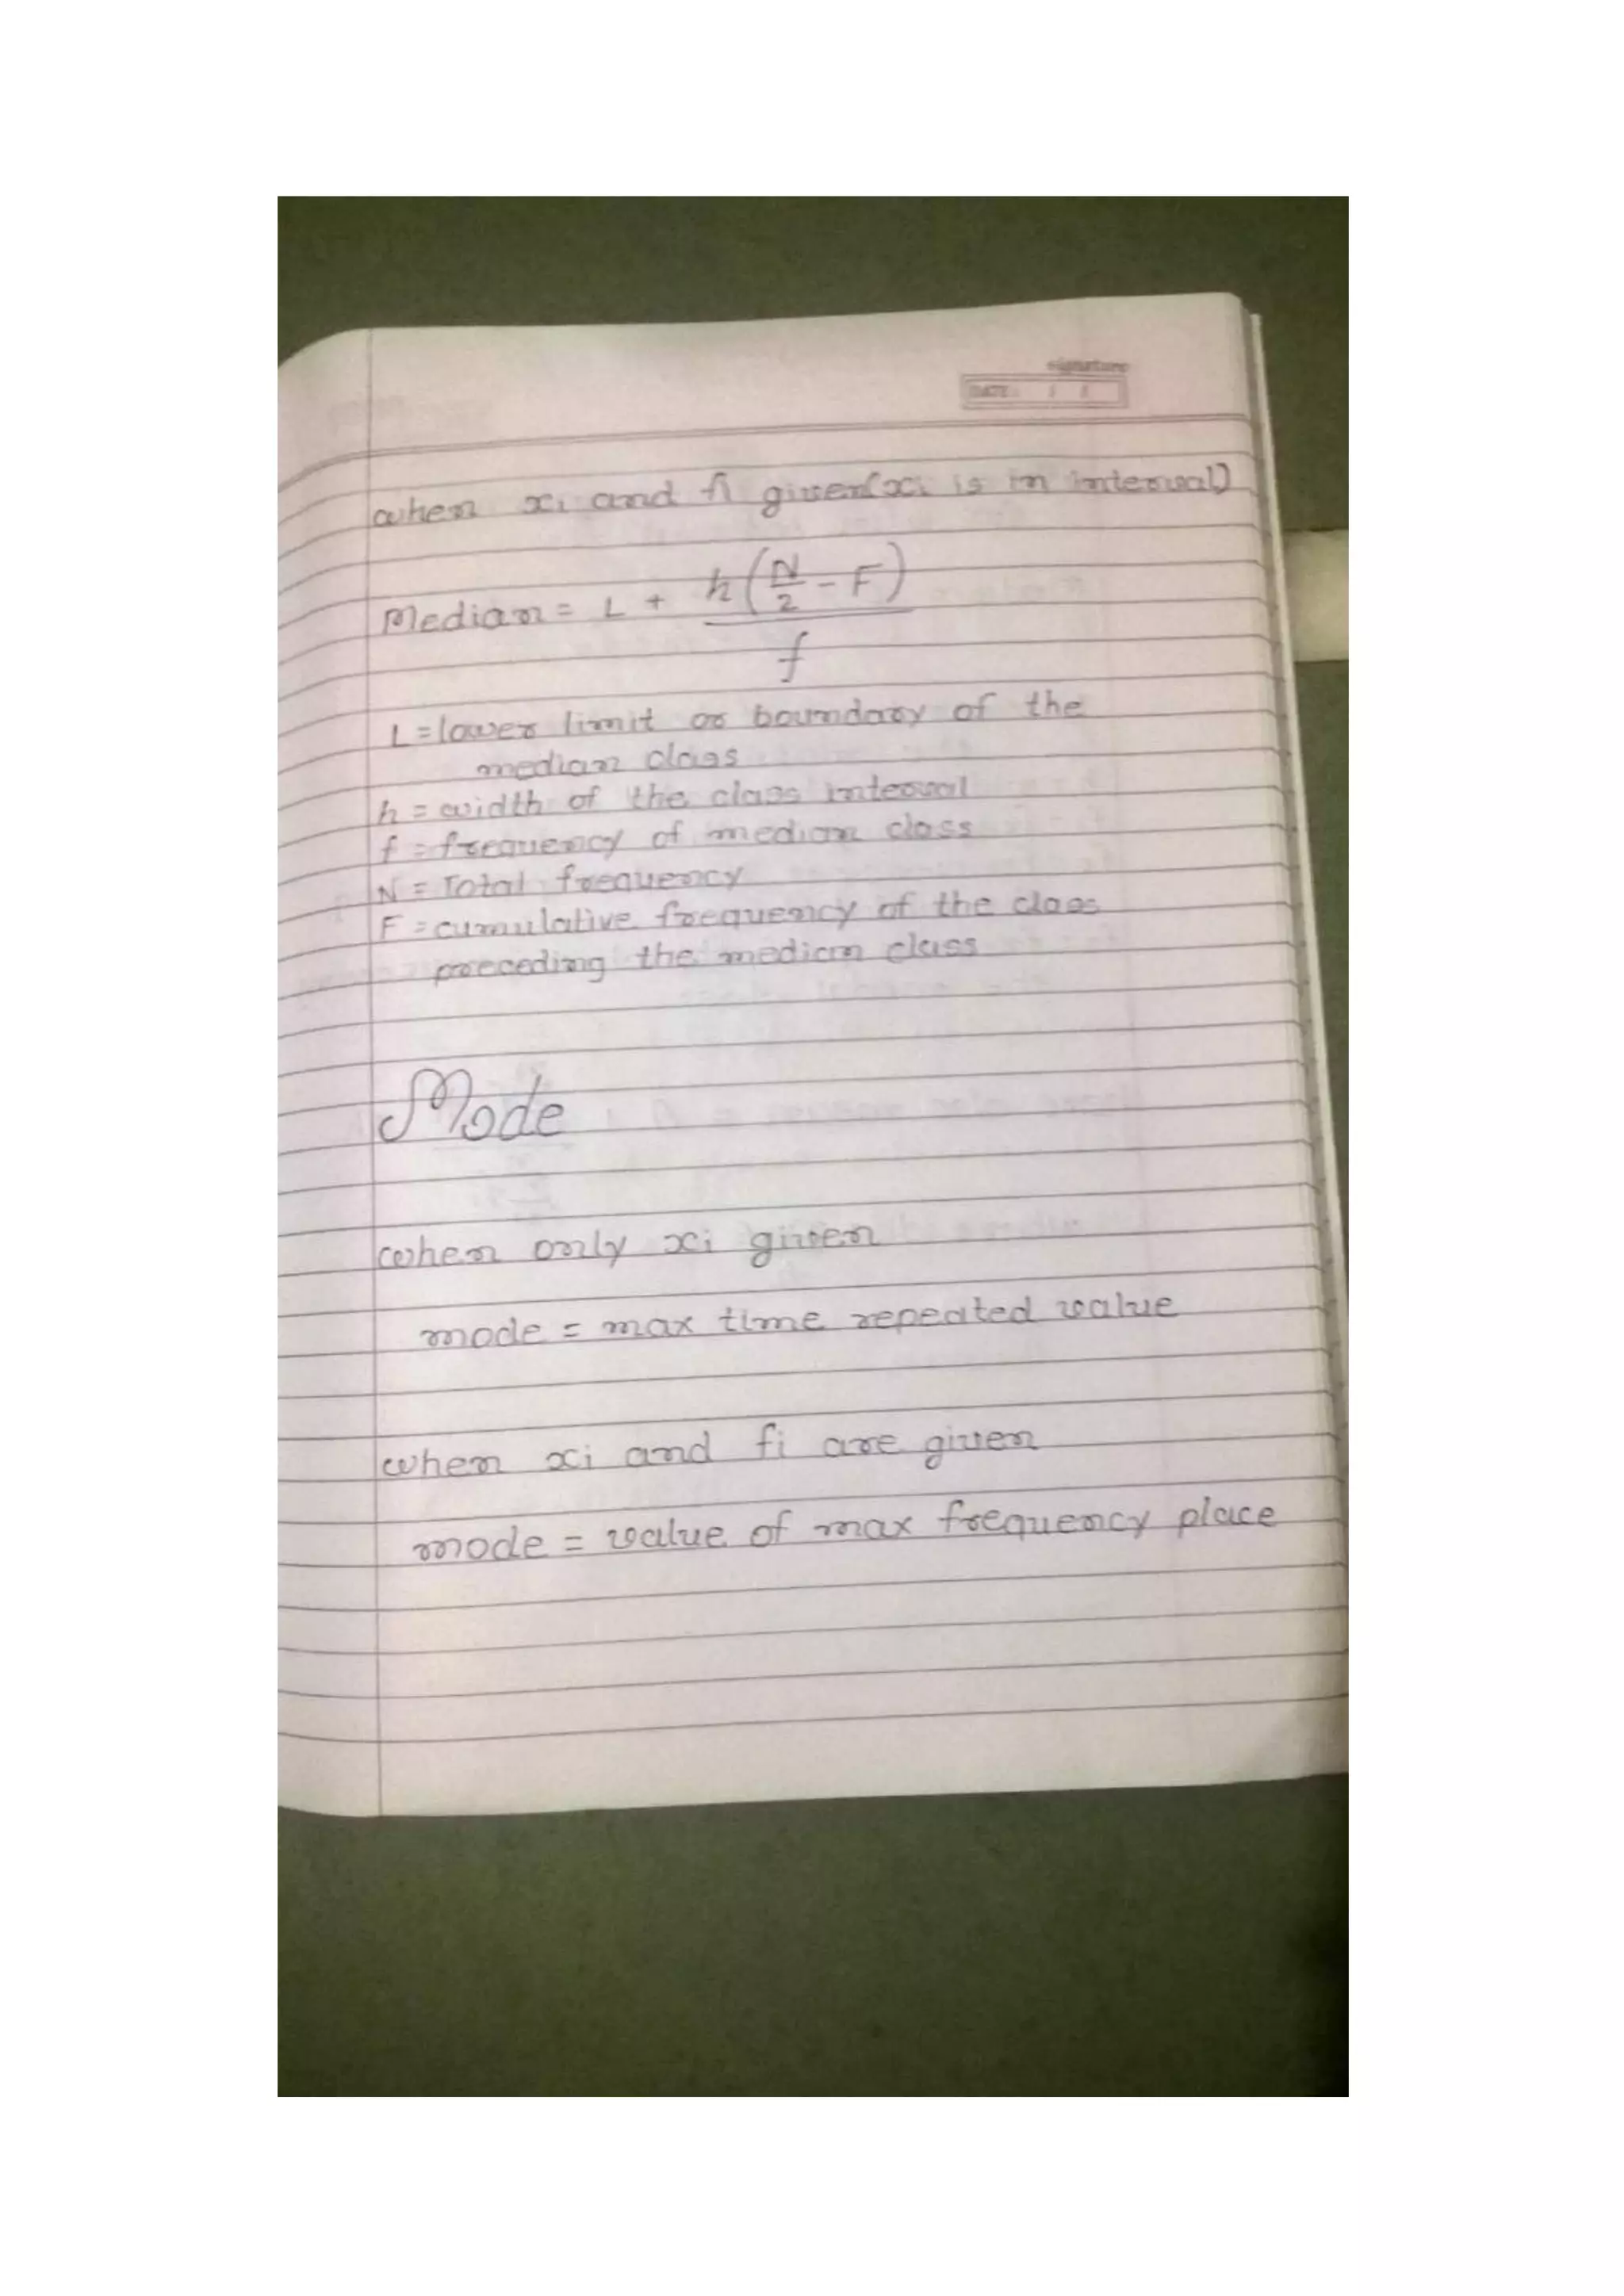 signature
DATE: / /
when xi and fi given(xi is in interval)
Median = L + h(N/2 - F)
f
L = lower limit or boundary of the
median class
h = width of the class interval
f = frequency of median class
N = Total frequency
F = cumulative frequency of the class
preceding the median class
Mode
when only xi given
mode = max time repeated value
when xi and fi are given
mode = value of max frequency place